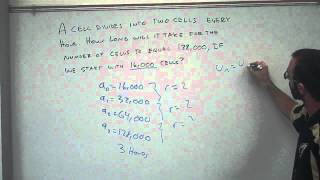 A CELL DIVIDES INTO TWO CELLS EVERY
HOUR. HOW LONG WILL IT TAKE FOR THE
NUMBER OF CELLS TO EQUAL 128,000, IF
WE START WITH 16,000 CELLS?
a₀ = 16,000
a₁ = 32,000 r = 2
a₂ = 64,000 r = 2
a₃ = 128,000 r = 2
3 HOURS
Uₙ = U